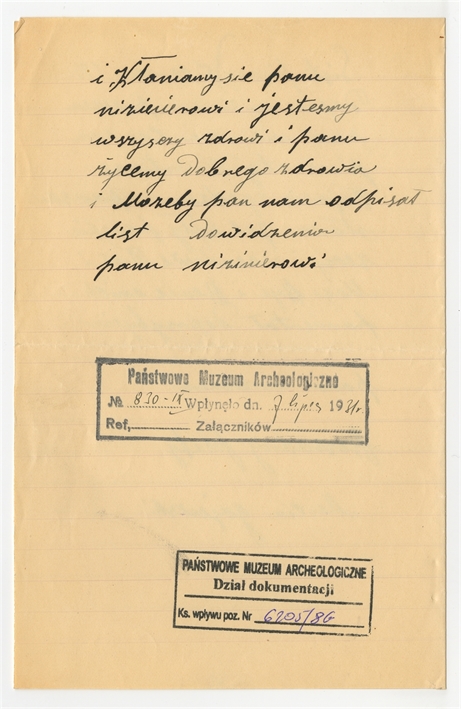 i Kłaniamy sie panu
nizinierowi i jestesmy
wszyscy zdrowi i panu
życemy dobrego zdrowia
i Mozeby pan nam odpisał
list dowidzenia
panu nizinierowi
Państwowe Muzeum Archeologiczne
№ 830-IX Wpłynęło dn. 7 lipca 1931r.
Ref, Załączników
PAŃSTWOWE MUZEUM ARCHEOLOGICZNE
Dział dokumentacji
Ks. wpływu poz. Nr 6205/86